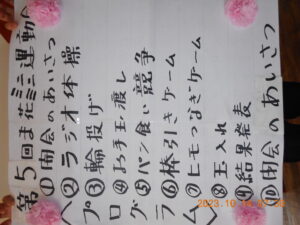 第5回ま花ミニ運動会
<プログラム>
①開会のあいさつ
②ラジオ体操
③輪投げ
④お手玉渡し
⑤パン食い競争
⑥棒引きゲーム
⑦ヒモつなぎゲーム
⑧玉入れ
⑨結果発表
⑩閉会のあいさつ